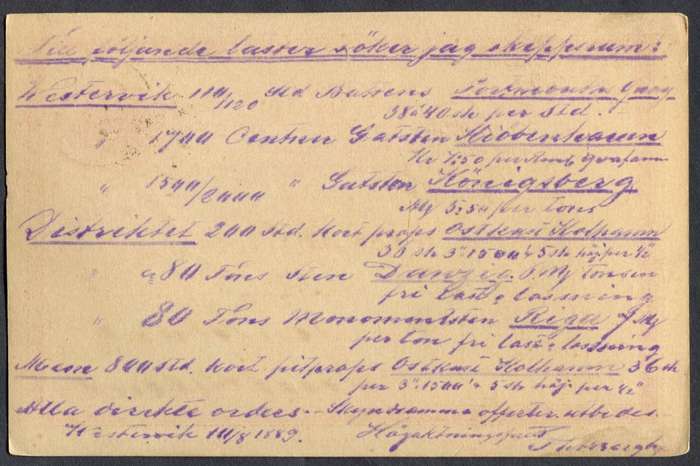 Till följande laster söker jag skeppsrum:
Westervik 110/120 Std Battens
38 à 40 sh per Std.
" 1700 Centner Gatsten Kiöbenhamn
Kr 7:50 per
" 1500/2000 " Gatsten Königsberg
3:50 per tons
Distriktet 200 Std. Kort props Ostkust Kolhamn
30 sh 3" 1500' 5 sh höj per ½"
" 80 Tons Sten Danzig. 5 My tonsen
fri last & lossning
" 80 Tons Monumentsten Riga 7 My
per ton fri last & lossning
800 Std. Kort pitprops Ostkust Kolhamn 36 sh
per 3" 1500' 5 sh höj per ½"
Alla direkte ordres. Skyndsamma offerter utbedes.
Westervik 11/8 1889. Högaktningsfullt